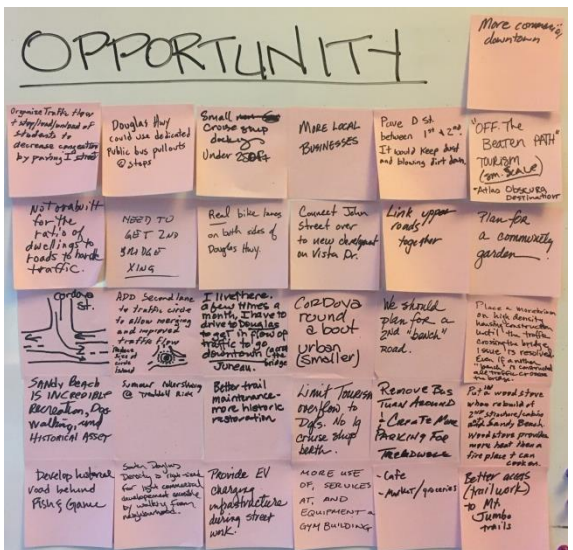 OPPORTUNITY
More
downtown
Organize Traffic flow
+ stop/load/unload of
students to
decrease congestion
by paving I street
Douglas Hwy
could use dedicated
Public bus pullouts
@ stops
Small
Cruise ship
docking
Under 250ft
MORE LOCAL
BUSINESSES
Pave D St.
between 1st & 2nd
It would keep dust
and blowing dirt down.
"OFF THE
Beaten PATH"
Tourism
(sm. scale)
-Atlas Obscura
Destination
Not
for the
ratio of
dwellings to
roads to handle
traffic.
NEED TO
GET 2ND
BRIDGE
XING
Real bike lanes
on both sides of
Douglas Hwy.
Connect John
street over
to new development
on Vista Dr.
Link upper
roads
together
Plan for
a community
garden!
Cordova
St.
ADD Second lane
to traffic circle
to allow merging
and improved
traffic flow
Reduce
size of
circle
island
I live there.
a few times a
month, I have to
drive to Douglas
to get in flow of
traffic to go
downtown (across the bridge)
Juneau.
CORDOVA
round
a bout
urban
(smaller)
We should
plan for a
2nd "bench"
road.
Place a moratorium
on high density
housing construction
until the traffic
crossing the bridge
issue is resolved.
Even if another
"bench" is constructed
all traffic crosses
the bridge.
SANDY BEACH
IS INCREDIBLE
RECREATION, Dog
Walking, and
HISTORICAL ASSET
Summer
@
Better trail
maintenance-
more historic
restoration
Limit Tourism
overflow to
Dgls. No lg
cruise ship
berth.
Remove Bus
Turn Around
& Create More
Parking For
Treadwell
Put a wood stove
when rebuild of
2nd structure/cabin
at Sandy Beach
Wood stove provides
more heat than a
fire place + can
cook on.
Develop historical
road behind
Fish & Game
Douglas
Density is high-need
for light commercial
development accessible
by walking from
neighborhood.
Provide EV
charging
infrastructure
during street
work.
MORE USE
OF, SERVICES
AT, AND
EQUIPMENT @
GYM BUILDING
- Cafe
- Market/groceries
Better access
(trail work)
to Mt.
Jumbo
trails